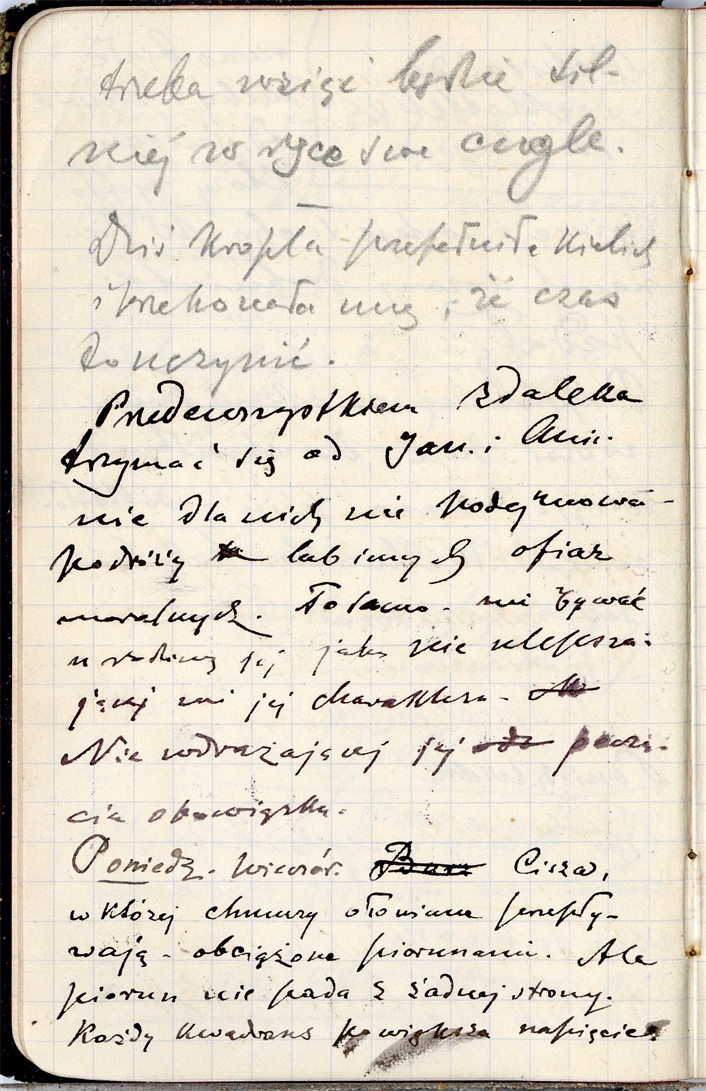 trzeba wziąć będzie sil-
niej w ręce swe cugle.
Dziś kropla przepełniła kielich
i przekonała mnie, że czas
to uczynić.
Przedewszystkiem zdaleka
trzymać się od Jan. i Anie.
nie dla nich nie podejmować
podróży lub innych ofiar
moralnych. To samo - nie bywać
u rodziny jej jako nie ulepsza-
jącej ani jej charakteru -
Nie wdrażającej jej poczu-
cia obowiązku.
Poniedz. wieczór. Cisza,
w której chmury ołowiane przepły-
wają - obciążone piorunami. Ale
piorun nie pada z żadnej strony.
Każdy kwadrans powiększa napięcie